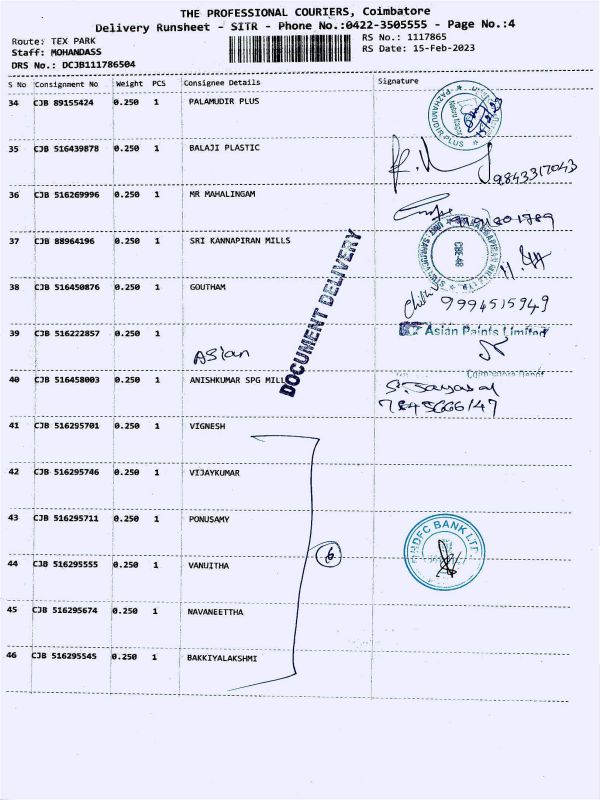 THE PROFESSIONAL COURIERS, Coimbatore
Delivery Runsheet - SITR - Phone No.:0422-3505555 - Page No.:4
Route: TEX PARK RS No.: 1117865
Staff: MOHANDASS RS Date: 15-Feb-2023
DRS No.: DCJB111786504
S No Consignment No Weight PCS Consignee Details Signature
34 CJB 89155424 0.250 1 PALAMUDIR PLUS
PAZHAMUDIR PLUS
35 CJB 516439878 0.250 1 BALAJI PLASTIC
9843317043
36 CJB 516269996 0.250 1 MR MAHALINGAM
37 CJB 88964196 0.250 1 SRI KANNAPIRAN MILLS
CBE-48
38 CJB 516450876 0.250 1 GOUTHAM
9994515949
DOCUMENT DELIVERY
39 CJB 516222857 0.250 1
Asian
Asian Paints Limited
40 CJB 516458003 0.250 1 ANISHKUMAR SPG MILL
7845666147
41 CJB 516295701 0.250 1 VIGNESH
42 CJB 516295746 0.250 1 VIJAYKUMAR
43 CJB 516295711 0.250 1 PONUSAMY
HDFC BANK LTD
6
44 CJB 516295555 0.250 1 VANUITHA
45 CJB 516295674 0.250 1 NAVANEETTHA
46 CJB 516295545 0.250 1 BAKKIYALAKSHMI